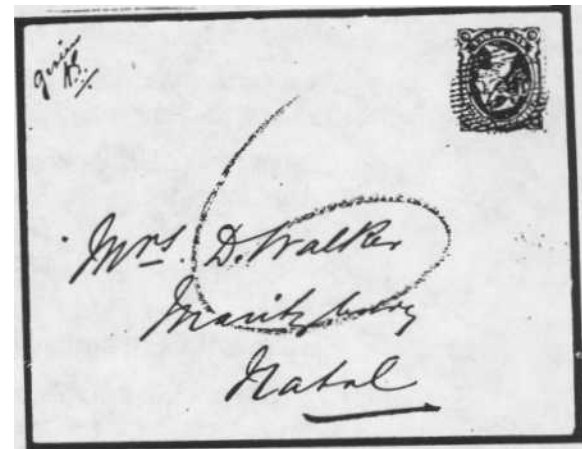 Mrs. D. Walker
Maritzburg
Natal
6